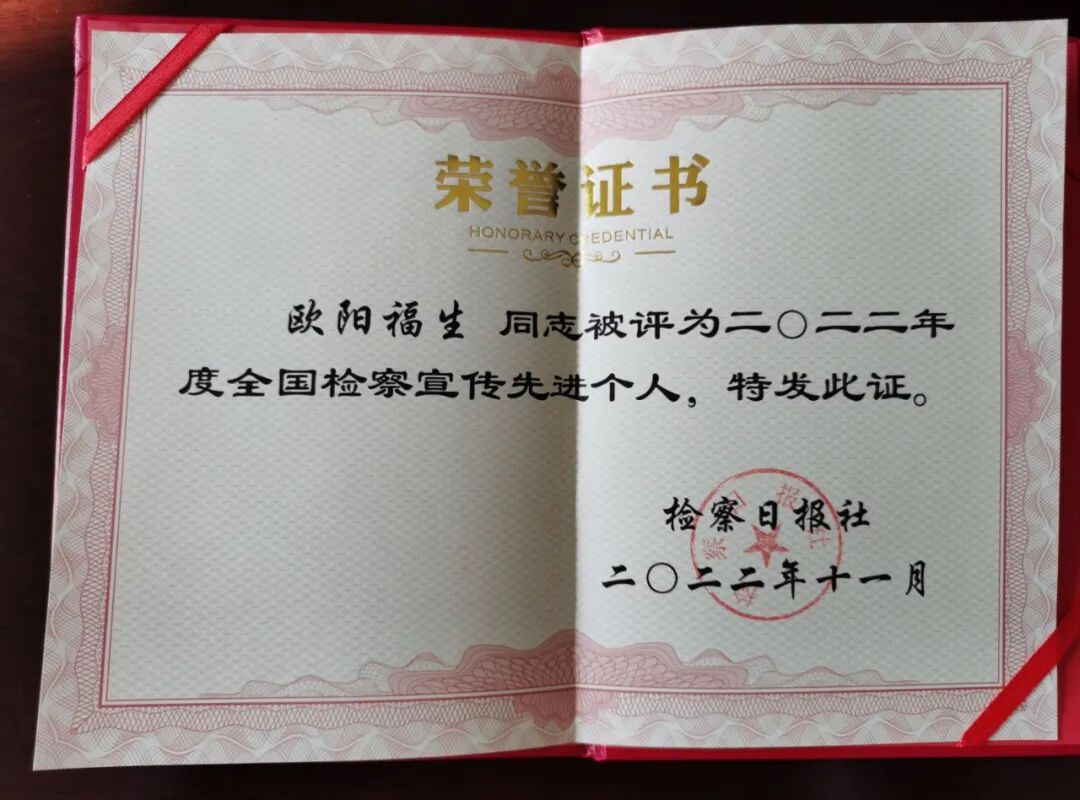 荣誉证书
HONORARY CREDENTIAL
欧阳福生 同志被评为二〇二二年
度全国检察宣传先进个人，特发此证。
检察日报社
二〇二二年十一月